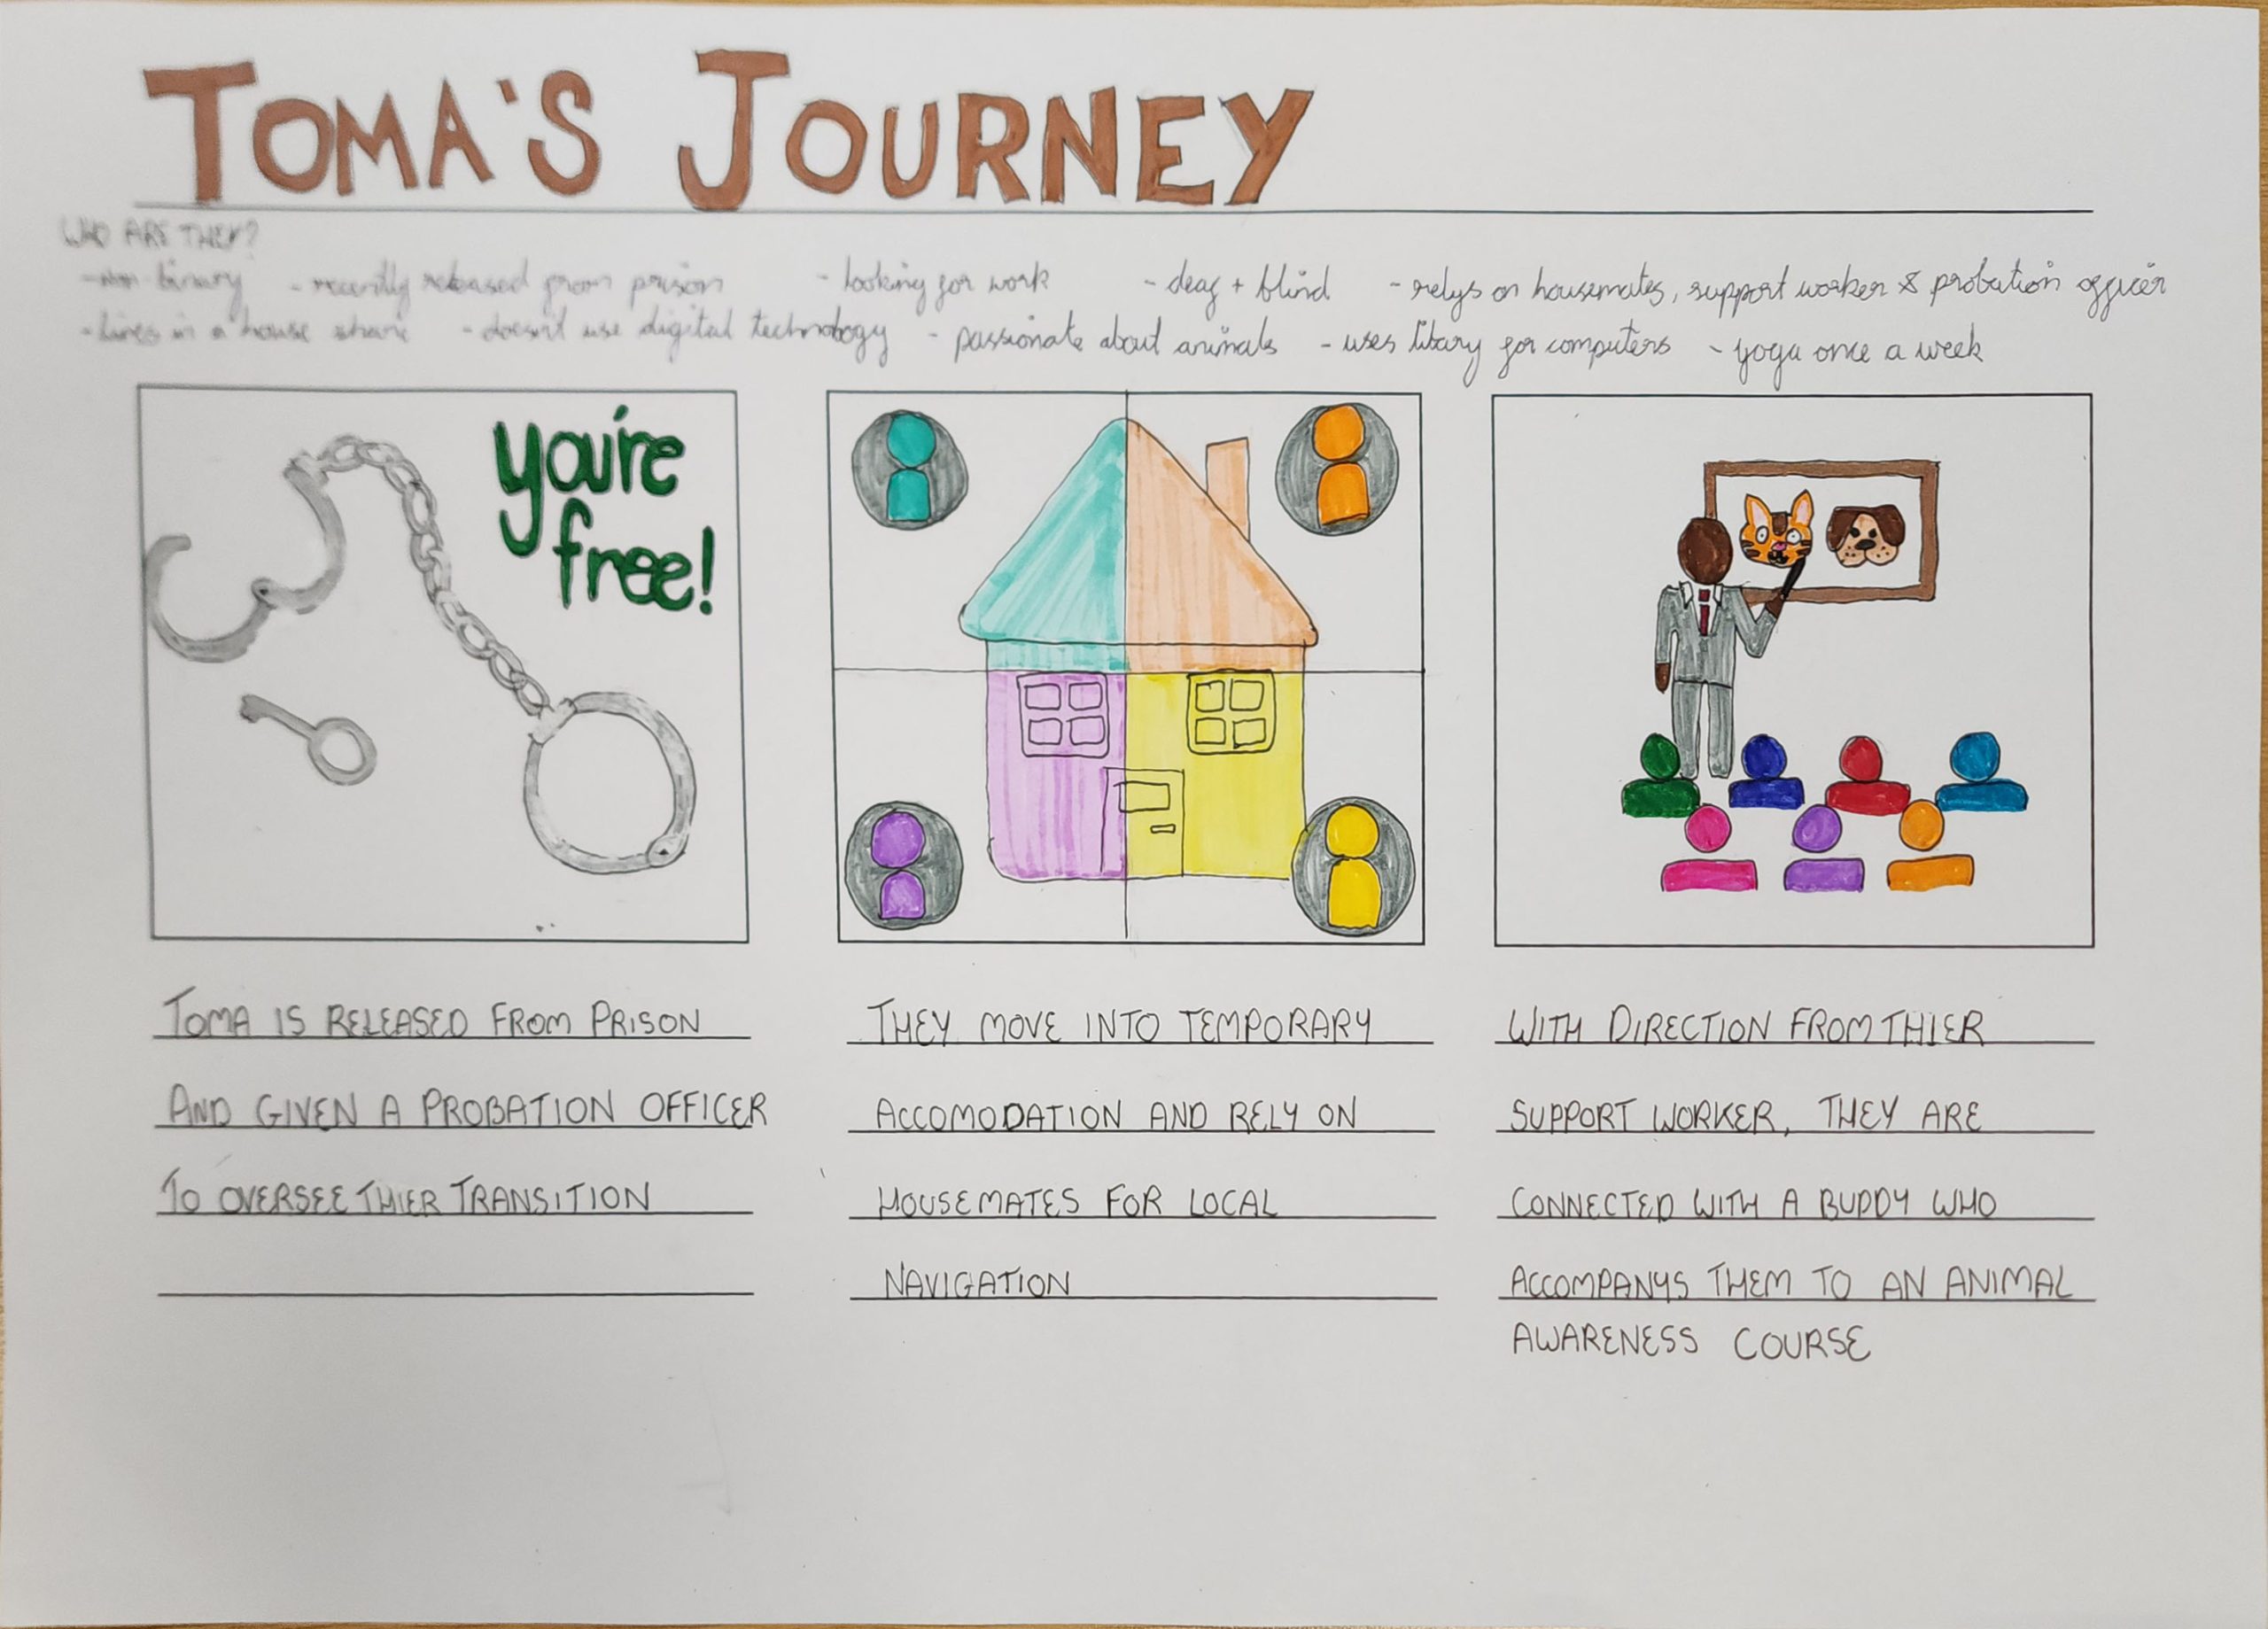 TOMA'S JOURNEY
WHO ARE THEY?
- non binary - recently released from prison - looking for work - deaf + blind - relys on housemates, support worker & probation officer
- lives in a house share - doesn't use digital technology - passionate about animals - uses libary for computers - yoga once a week
you're
free!
TOMA IS RELEASED FROM PRISON
AND GIVEN A PROBATION OFFICER
TO OVERSEE THIER TRANSITION
THEY MOVE INTO TEMPORARY
ACCOMODATION AND RELY ON
HOUSEMATES FOR LOCAL
NAVIGATION
WITH DIRECTION FROM THIER
SUPPORT WORKER, THEY ARE
CONNECTED WITH A BUDDY WHO
ACCOMPANYS THEM TO AN ANIMAL
AWARENESS COURSE